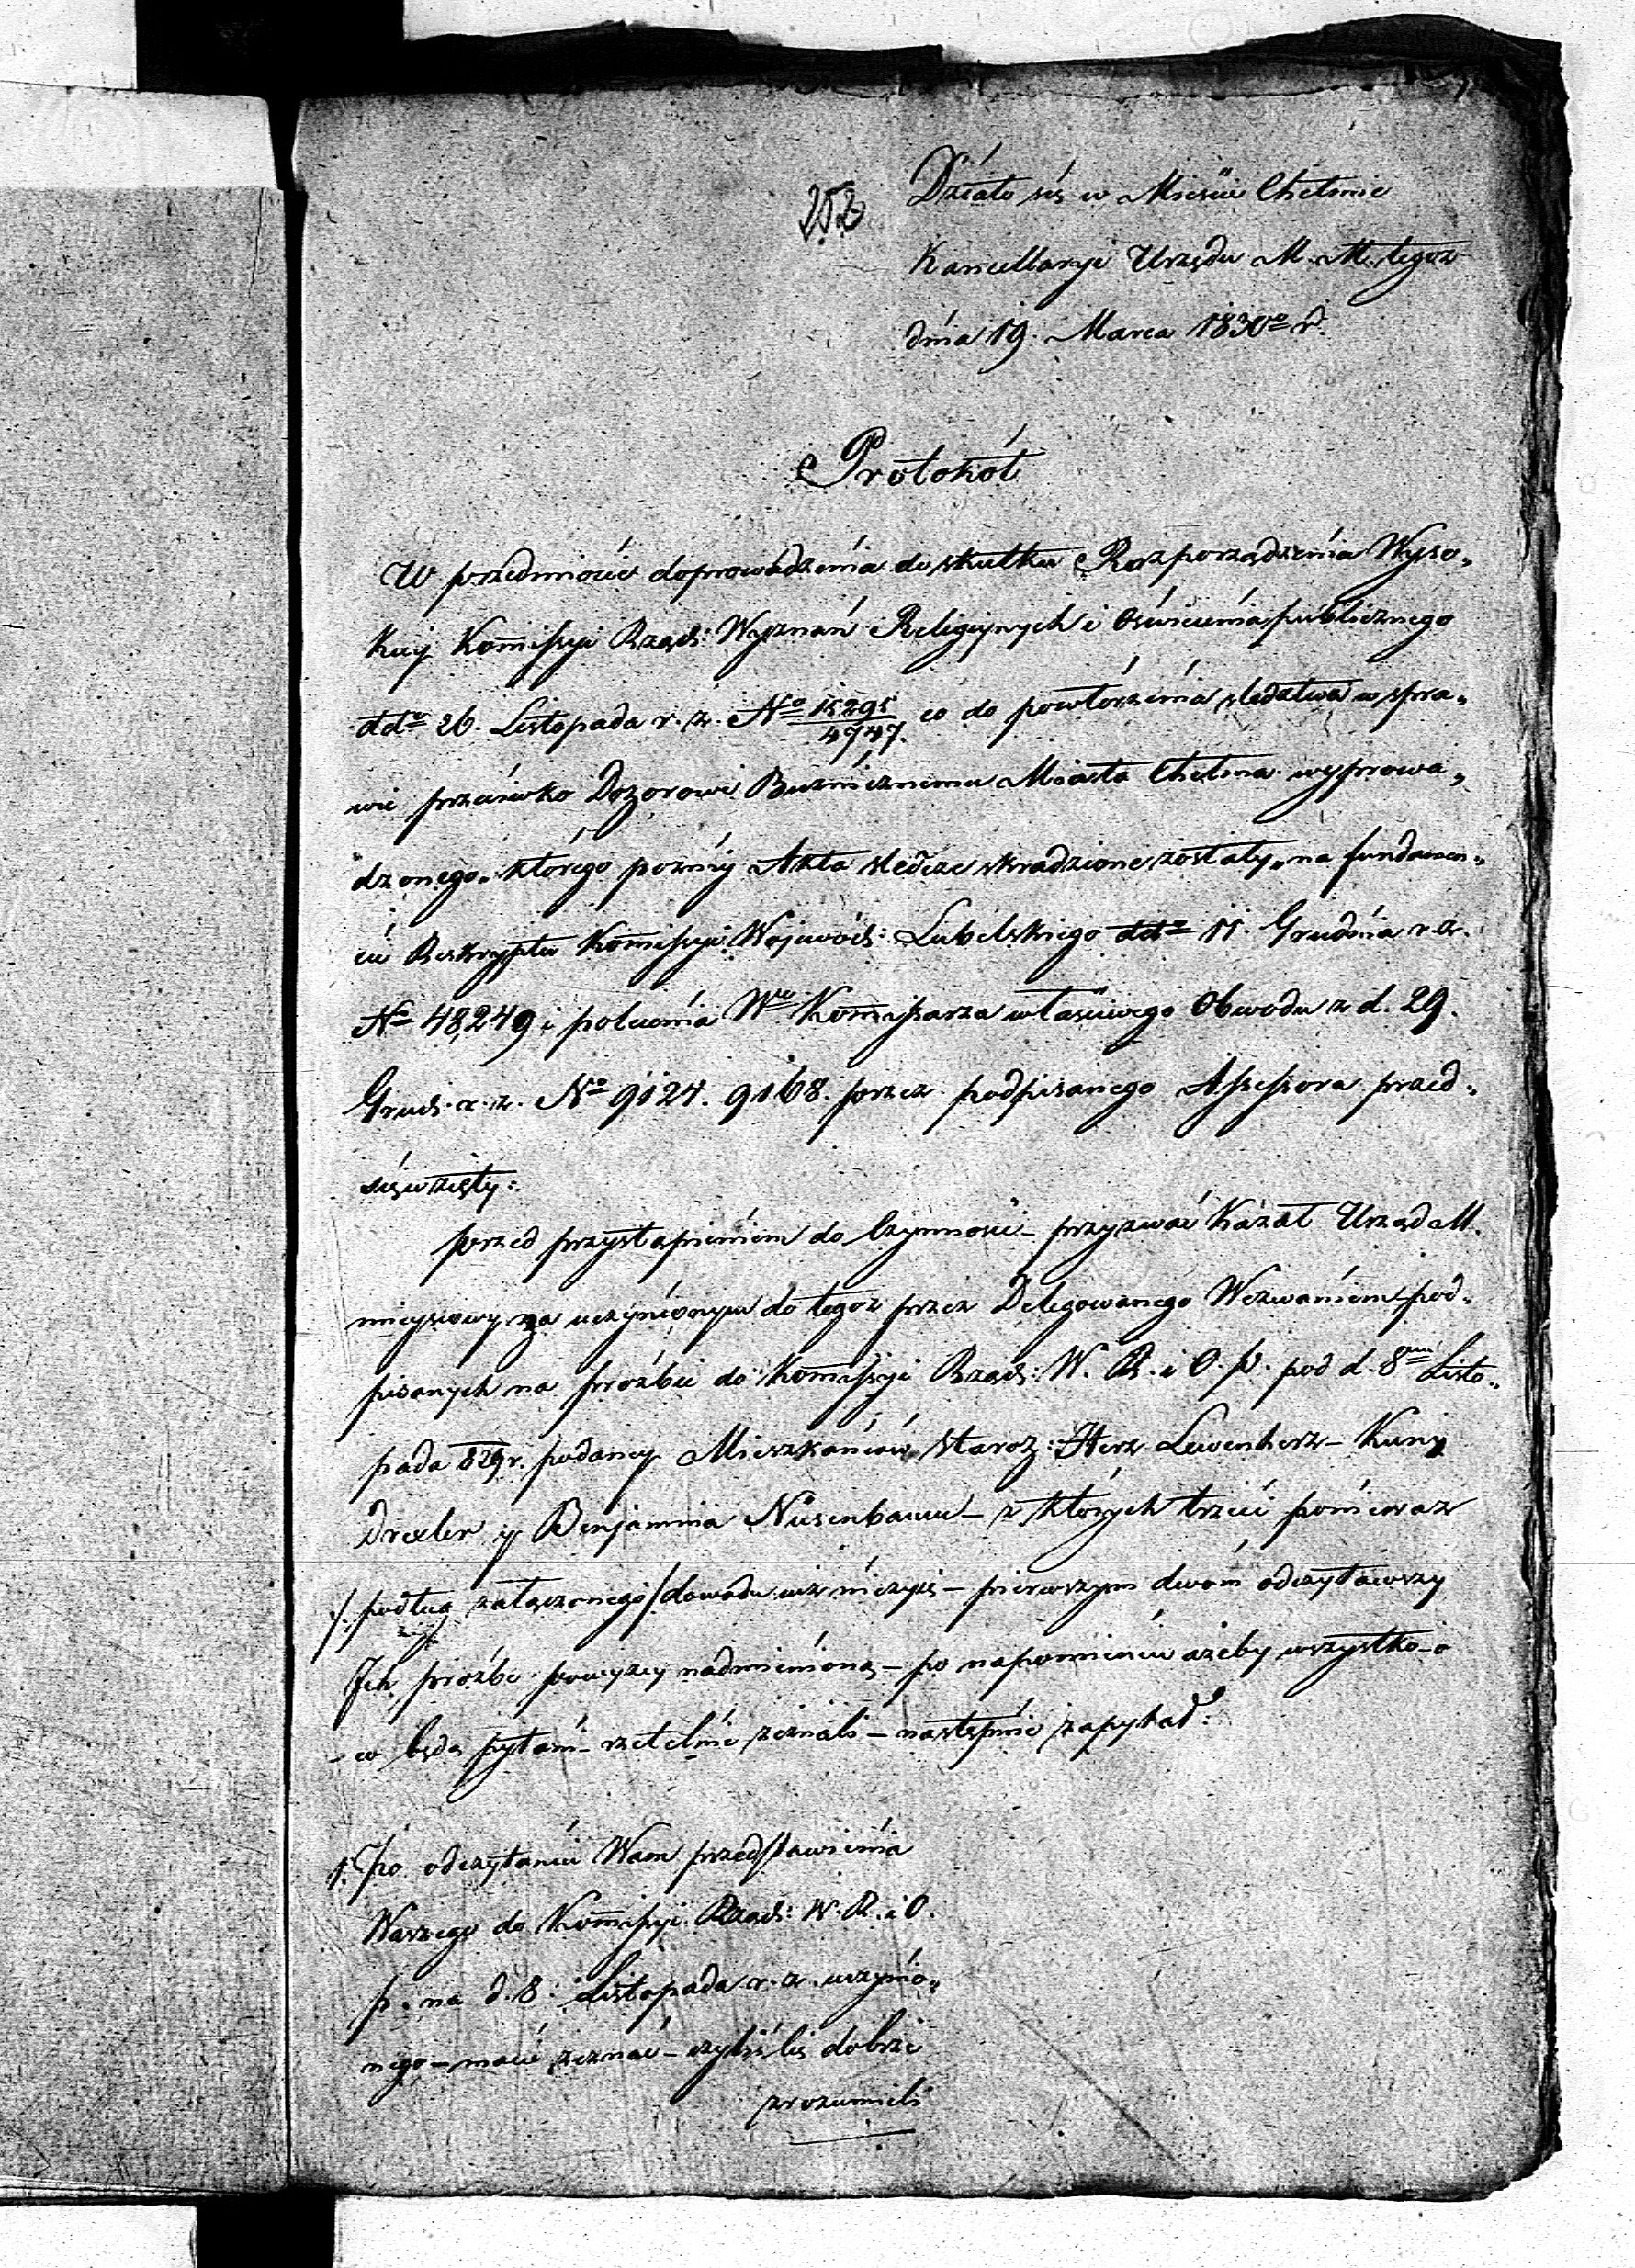 252
Działo się w Mieście Chełmie
Kancellaryi Urzędu M. M. tegoż
dnia 19. Marca 1830º r.
Protokół
W przedmiocie doprowadzenia do skutku Rozporządzenia Wyso„
kiéy Kommissyi Rząd: Wyznań Religiynych i Oświecenia publicznego
ddº 26. Listopada r. z. Nº 15295/4747. co do powtórzenia śledztwa w spra„
wie przeciwko Dozorowi Bużnicznemu Miasta Chełma wyprowa„
dzonego, którego poźniéy Akta śledcze skradzione zostały, na fundamen„
cie Reskryptu Kommissyi Wojewódz: Lubelskiego ddº 11. Grudnia r. z.
Nº 48,249 i polecenia Wº Kommissarza właściwego Obwodu z d. 29.
Grud. r. z. Nº 9124. 9168. przez podpisanego Assessora przed„
sięwzięty:
przed przystąpieniem do Czynności – przyzwać kazał Urząd M.
mieyscowy za uczynionym do tegoż przez Delegowanego Wezwaniem pod„
pisanych na proźbie do Kommissyi Rząd: W. R. i O. p. pod d. 8ym Listo„
pada 829 r. podaney Mieszkańców staroz: Herz Lewenherz – Kuny
Drexler y Benjamina Nusenbaum – z których trzeci ponieważ
./. podług załączonego /. dowodu już nieżyie – pierwszym dwóm odczytawszy
Ich proźbe powyżey nadmienioną – po napomnieniu ażeby wszystko – o
– co będą pytani – rzetelnie zeznali – następnie zapytał:
1. Po odczytaniu Wam przedstawienia
Waszego do Kommissyi Rząd: W. R. i O.
p. na d. 8: Listopada r. z. uczynio„
nego – macie zeznać – czyliście dobrze
zrozumieli